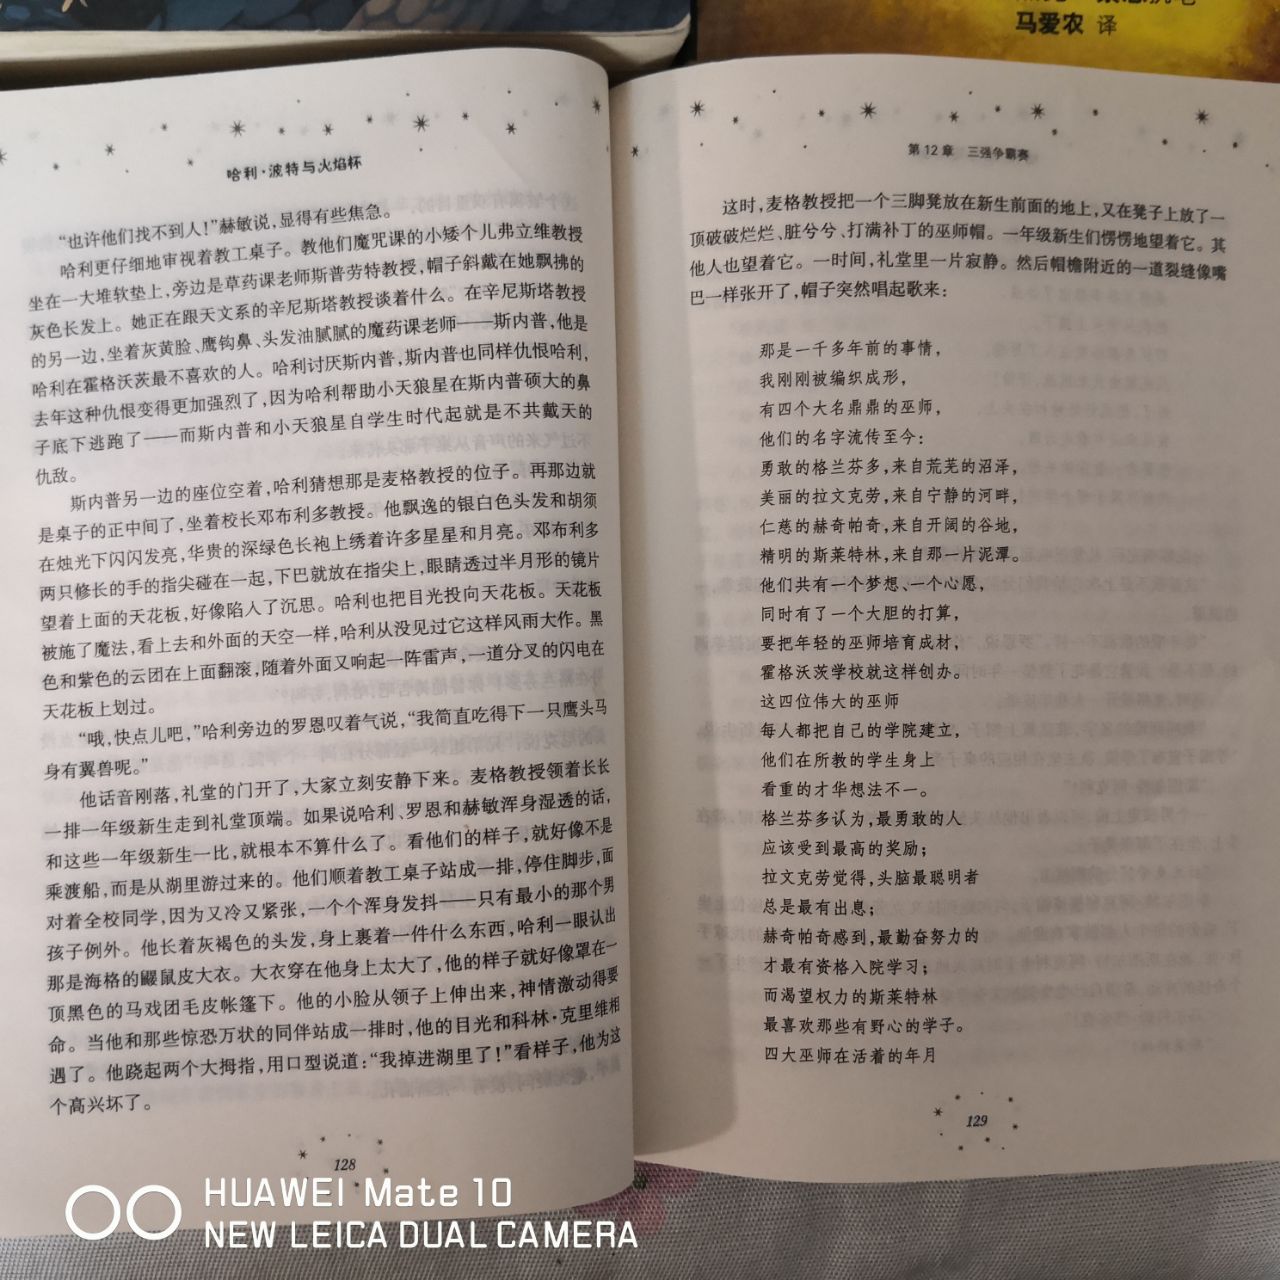 马爱农 译
哈利·波特与火焰杯
“也许他们找不到人！”赫敏说，显得有些焦急。
哈利更仔细地审视着教工桌子。教他们魔咒课的小矮个儿弗立维教授
坐在一大堆软垫上，旁边是草药课老师斯普劳特教授，帽子斜戴在她飘拂的
灰色长发上。她正在跟天文系的辛尼斯塔教授谈着什么。在辛尼斯塔教授
的另一边，坐着灰黄脸、鹰钩鼻、头发油腻腻的魔药课老师——斯内普，他是
哈利在霍格沃茨最不喜欢的人。哈利讨厌斯内普，斯内普也同样仇恨哈利，
去年这种仇恨变得更加强烈了，因为哈利帮助小天狼星在斯内普硕大的鼻
子底下逃跑了——而斯内普和小天狼星自学生时代起就是不共戴天的
仇敌。
斯内普另一边的座位空着，哈利猜想那是麦格教授的位子。再那边就
是桌子的正中间了，坐着校长邓布利多教授。他飘逸的银白色头发和胡须
在烛光下闪闪发亮，华贵的深绿色长袍上绣着许多星星和月亮。邓布利多
两只修长的手的指尖碰在一起，下巴就放在指尖上，眼睛透过半月形的镜片
望着上面的天花板，好像陷入了沉思。哈利也把目光投向天花板。天花板
被施了魔法，看上去和外面的天空一样，哈利从没见过它这样风雨大作。黑
色和紫色的云团在上面翻滚，随着外面又响起一阵雷声，一道分叉的闪电在
天花板上划过。
“哦，快点儿吧，”哈利旁边的罗恩叹着气说，“我简直吃得下一只鹰头马
身有翼兽呢。”
他话音刚落，礼堂的门开了，大家立刻安静下来。麦格教授领着长长
一排一年级新生走到礼堂顶端。如果说哈利、罗恩和赫敏浑身湿透的话，
和这些一年级新生一比，就根本不算什么了。看他们的样子，就好像不是
乘渡船，而是从湖里游过来的。他们顺着教工桌子站成一排，停住脚步，面
对着全校同学，因为又冷又紧张，一个个浑身发抖——只有最小的那个男
孩子例外。他长着灰褐色的头发，身上裹着一件什么东西，哈利一眼认出
那是海格的鼹鼠皮大衣。大衣穿在他身上太大了，他的样子就好像罩在一
顶黑色的马戏团毛皮帐篷下。他的小脸从领子上伸出来，神情激动得要
命。当他和那些惊恐万状的同伴站成一排时，他的目光和科林·克里维相
遇了。他跷起两个大拇指，用口型说道：“我掉进湖里了！”看样子，他为这
个高兴坏了。
128
第12章 三强争霸赛
这时，麦格教授把一个三脚凳放在新生前面的地上，又在凳子上放了一
顶破破烂烂、脏兮兮、打满补丁的巫师帽。一年级新生们愣愣地望着它。其
他人也望着它。一时间，礼堂里一片寂静。然后帽檐附近的一道裂缝像嘴
巴一样张开了，帽子突然唱起歌来：
那是一千多年前的事情，
我刚刚被编织成形，
有四个大名鼎鼎的巫师，
他们的名字流传至今：
勇敢的格兰芬多，来自荒芜的沼泽，
美丽的拉文克劳，来自宁静的河畔，
仁慈的赫奇帕奇，来自开阔的谷地，
精明的斯莱特林，来自那一片泥潭。
他们共有一个梦想、一个心愿，
同时有了一个大胆的打算，
要把年轻的巫师培育成材，
霍格沃茨学校就这样创办。
这四位伟大的巫师
每人都把自己的学院建立，
他们在所教的学生身上
看重的才华想法不一。
格兰芬多认为，最勇敢的人
应该受到最高的奖励；
拉文克劳觉得，头脑最聪明者
总是最有出息；
赫奇帕奇感到，最勤奋努力的
才最有资格入院学习；
而渴望权力的斯莱特林
最喜欢那些有野心的学子。
四大巫师在活着的年月
129
HUAWEI Mate 10
NEW LEICA DUAL CAMERA